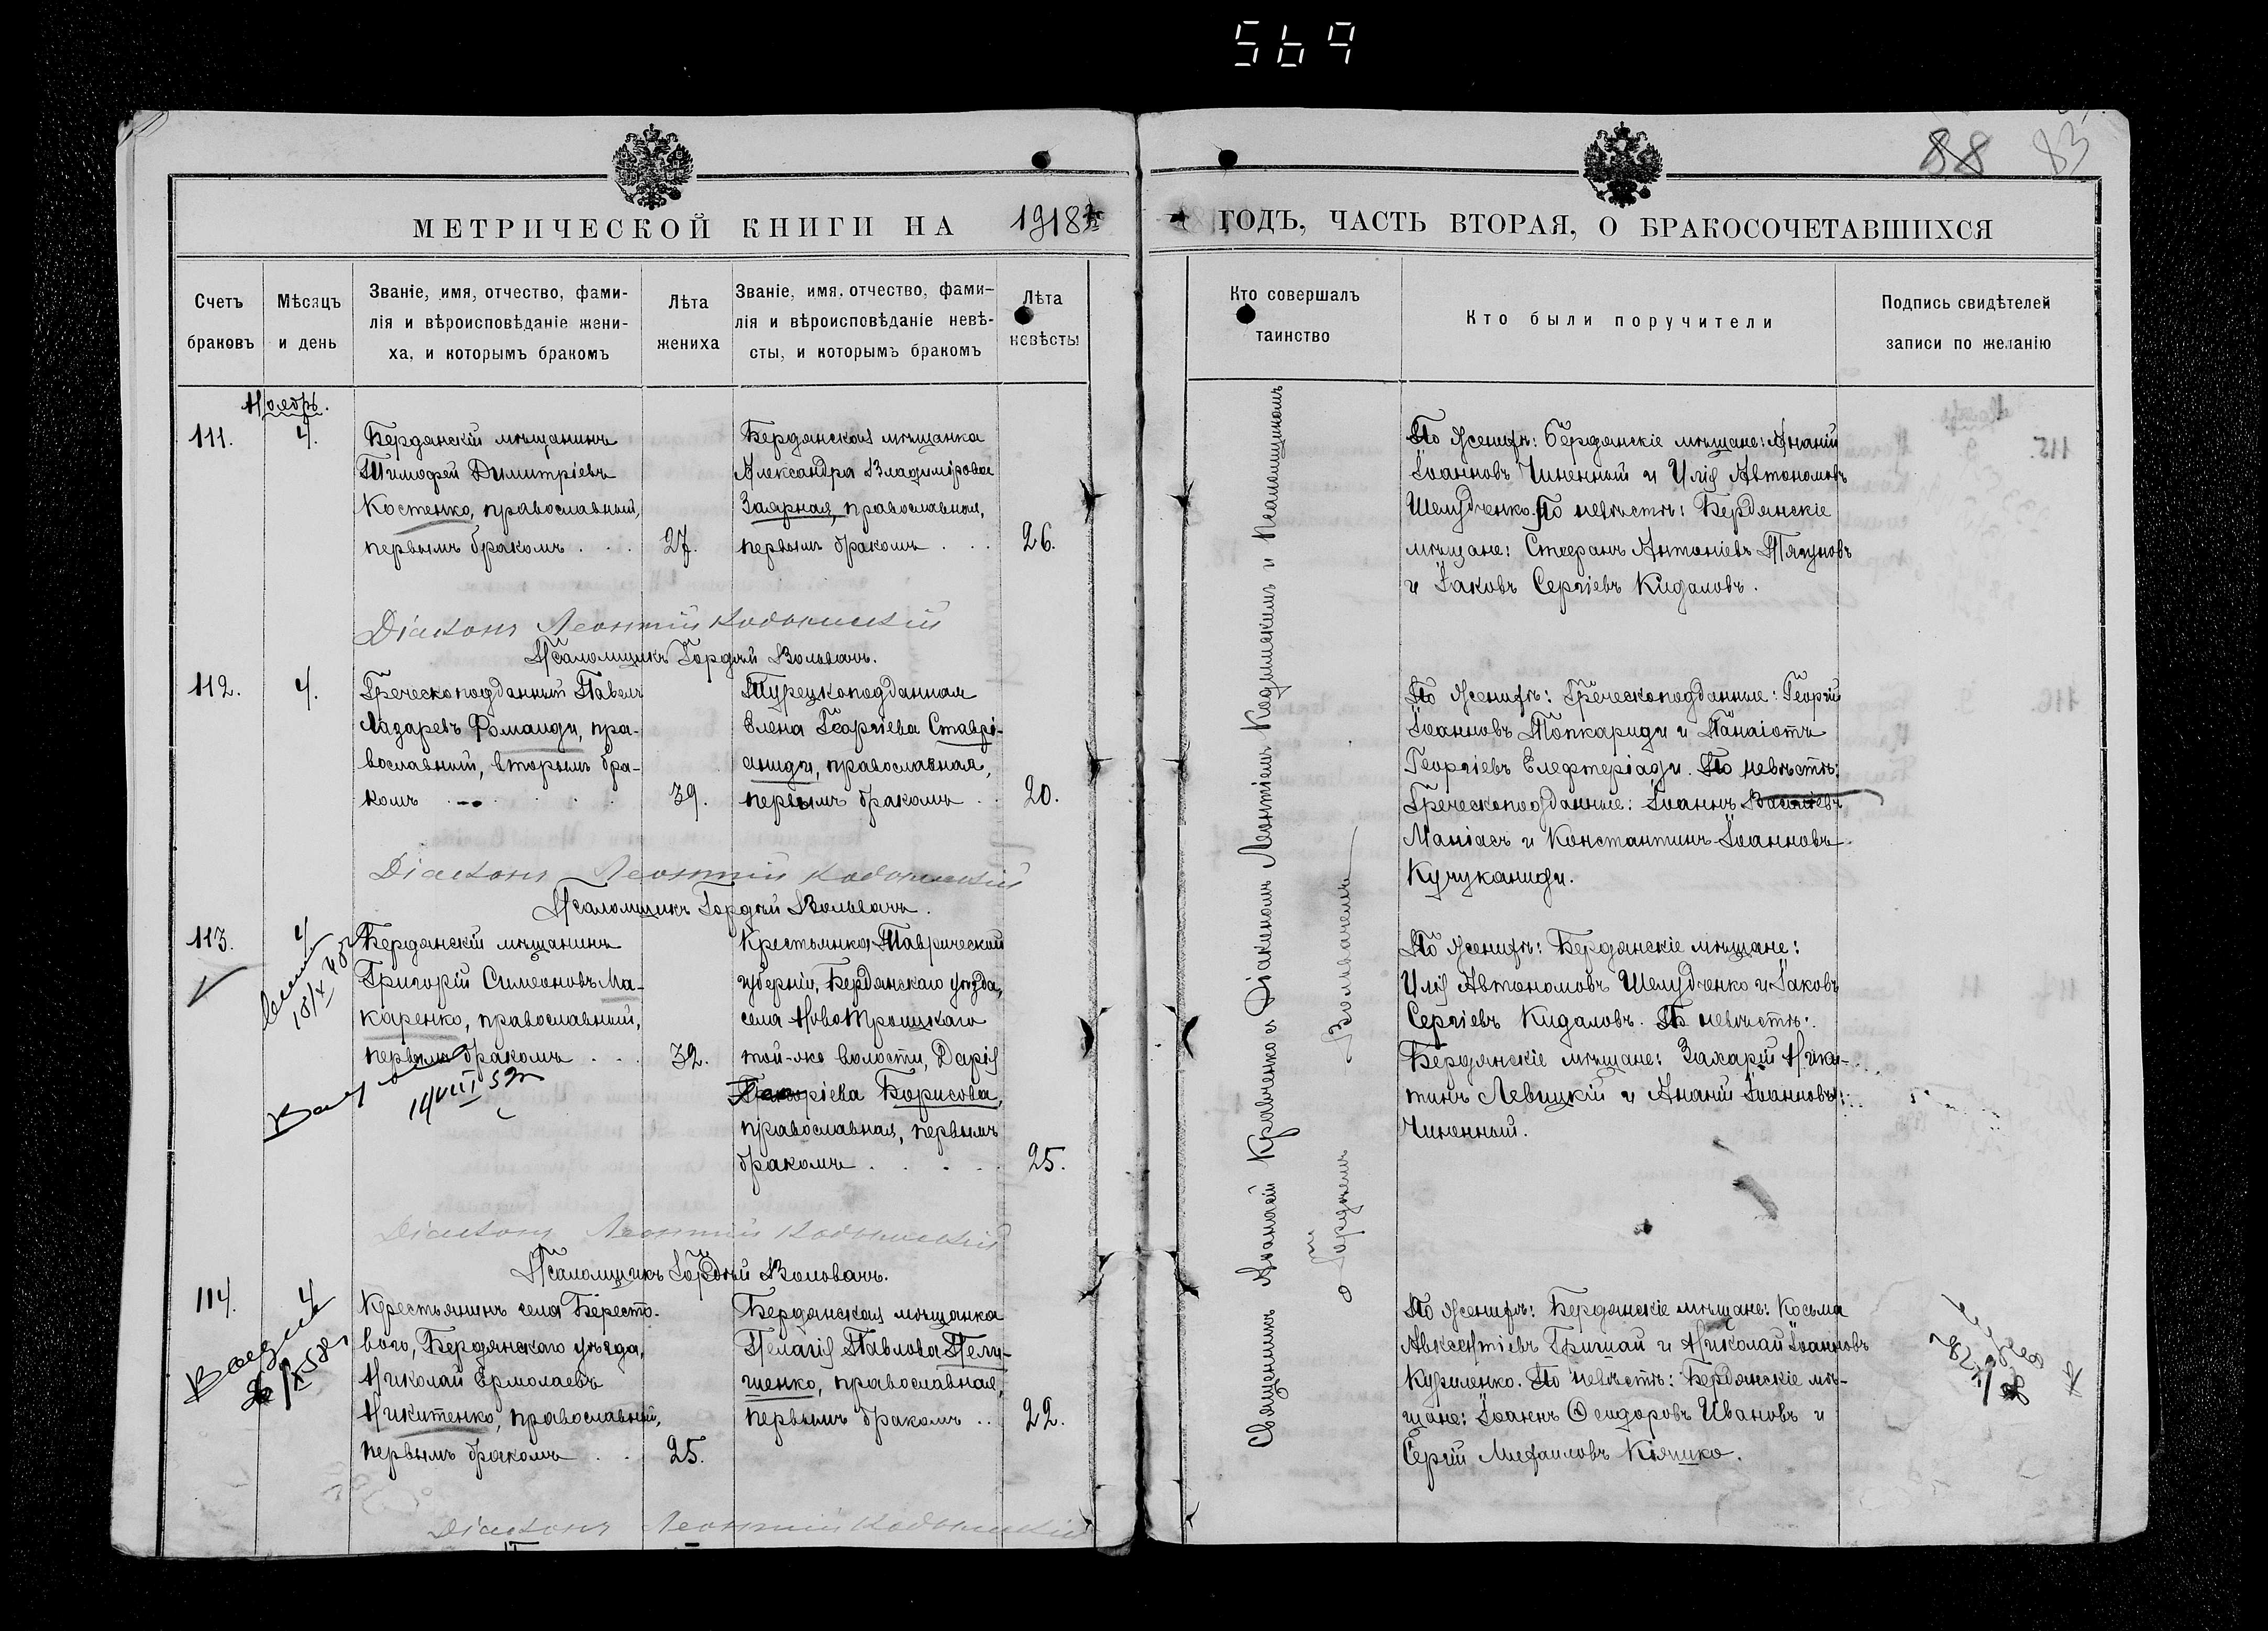 569
88 83
МЕТРИЧЕСКОЙ КНИГИ НА 1918
ГОДЪ, ЧАСТЬ ВТОРАЯ, О БРАКОСОЧЕТАВШИХСЯ
Счетъ
браковъ
Мѣсяцъ
и день
Званіе, имя, отчество, фами-
лія и вѣроисповѣданіе жени-
ха, и которымъ бракомъ
Лѣта
жениха
Званіе, имя, отчество, фами-
лія и вѣроисповѣданіе невѣ-
сты, и которымъ бракомъ
Лѣта
невѣсты
Кто совершалъ
таинство
Кто были поручители
Подпись свидѣтелей
записи по желанію
Ноябрь.
111.
4.
Бердянскій мѣщанинъ
Тимофей Димитріевъ
Костенко, православный,
первымъ бракомъ . . .
27.
Бердянская мѣщанка
Александра Владимірова
Заярная, православная,
первымъ бракомъ . . .
26.
По женихѣ: Бердянскіе мѣщане: Ананій
Іоанновъ Чиненный и Илія Автономовъ
Шелудченко. По невѣстѣ: Бердянскіе
мѣщане: Стефанъ Антоніевъ Тягуновъ
и Іаковъ Сергіевъ Кидаловъ.
Діаконъ Леонтій
Псаломщикъ Гордѣй Воловачъ.
112.
4.
Греческоподданный Павелъ
Лазаревъ Фомаиди, пра-
вославный, вторымъ бра-
комъ . . . . .
39.
Турецкоподданная
Елена Георгіева Ставрі-
аниди, православная,
первымъ бракомъ . .
20.
По женихѣ: Греческоподданные: Георгій
Іоанновъ Топкариди и Панаіотъ
Георгіевъ Елефтеріади. По невѣстѣ:
Греческоподданные: Іоаннъ Василіевъ
Маніасъ и Константинъ Іоанновъ
Кучуканиди.
Діаконъ Леонтій
Псаломщикъ Гордѣй Воловачъ.
113.
4
Бердянскій мѣщанинъ
Григорій Симеоновъ Ма-
каренко, православный,
первымъ бракомъ . . .
32.
14/VIII 52
Крестьянка Таврической
губерніи, Бердянскаго уѣзда,
села НовоТроицкаго
той-же волости, Дарія
Борисова,
православная, первымъ
бракомъ . . . . .
25.
По женихѣ: Бердянскіе мѣщане:
Илія Автономовъ Шелудченко и Іаковъ
Сергіевъ Кидаловъ. По невѣстѣ:
Бердянскіе мѣщане: Захарій Ники-
тинъ Левицкій и Ананій Іоанновъ
Чиненный.
Діаконъ Леонтій
Псаломщикъ Гордѣй Воловачъ.
114.
4
Крестьянинъ села Бересто-
вого, Бердянскаго уѣзда,
Николай Ермолаевъ
Никитенко, православный,
первымъ бракомъ . .
25.
Бердянская мѣщанка
Пелагія Павлова Пелу-
шенко, православная,
первымъ бракомъ . .
22.
По женихѣ: Бердянскіе мѣщане: Косьма
Авксентіевъ Гришай и Николай Іоанновъ
Куриленко. По невѣстѣ: Бердянскіе мѣ-
щане: Іоаннъ Ѳеодоровъ Ивановъ и
Сергій Михаиловъ Кіяшко.
Діаконъ Леонтій
Священникъ Аѳанасій Кравченко съ Діакономъ Леонтіемъ и Псаломщикомъ
Гордѣемъ Воловачемъ